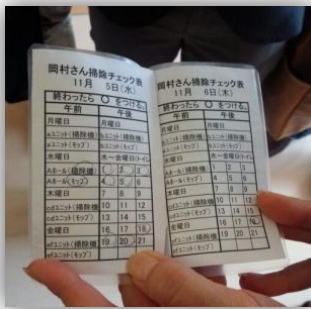 岡村さん掃除チェック表
11月 5日(水)
終わったら ○ をつける。
午前 午後
月曜日 月曜日
ユニット(掃除機)
ユニット(モップ)
水曜日 木～金曜日トイレ
Aホール(掃除機) 1 2 3
Aホール(モップ) 4 5 6
木曜日 7 8 9
ユニット(掃除機 10 11 12
ユニット(モップ) 13 14 15
金曜日 16 17 18
ユニット(掃除機 19 20 21
ユニット(モップ)
岡村さん掃除チェック表
11月 6日(木)
終わったら ○ をつける。
午前 午後
月曜日 月曜日
ユニット(掃除機)
ユニット(モップ)
水曜日 木～金曜日トイレ
Aホール(掃除機 2 3
Aホール(モップ) 4 5 6
木曜日 7 8 9
ユニット(掃除機 10 11 12
ユニット(モップ) 13 14 15
金曜日 16 17 18
ユニット(掃除機 19 20 21
ユニット(モップ)